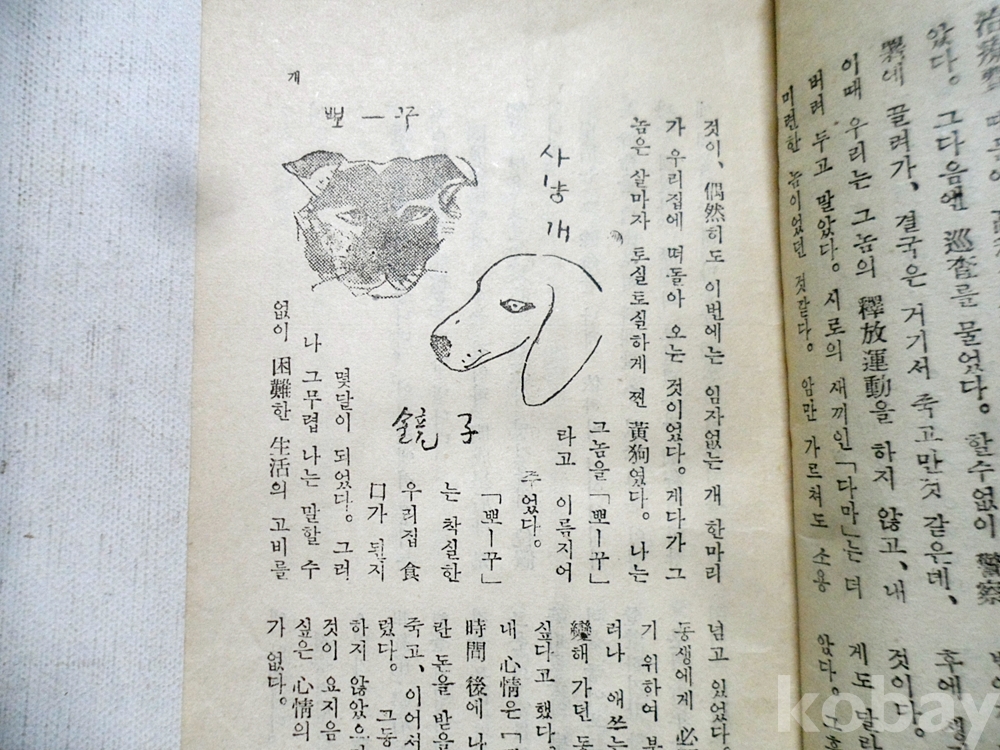 았다。 그다음엔 巡査를 물었다。 할수없이 警察
署에 끌려가、 결국은 거기서 죽고만것 같은데、
이때 우리는 그놈의 釋放運動을 하지 않고、 내
버려 두고 말았다。 시로의 새끼인 「다마」는 더
미련한 놈이었던 것같다。 암만 가르쳐도 소용
후에
것이다。
게도 달리
았다。
개
뽀ー꾸
사냥개
鏡子
것이、 偶然히도 이번에는 임자없는 개 한마리
가 우리집에 떠돌아 오는 것이었다。 게다가 그
놈은 살마자 토실토실하게 찐 黃狗였다。 나는
그놈을 「뽀ー꾸」
타고 이름지어
주었다。
「뽀ー꾸」
는 착실한
우리집 食
口가 된지
몇달이 되었다。 그러
나 그무렵 나는 말할 수
없이 困難한 生活의 고비를
넘고 있었다。
동생에게 必
기 위하여
러나 애쓰는
變해 가던 동
싶다고 했다。
내 心情은
時間 後에 나
란 돈을 받을
죽고、 이어서
렀다。 그동
하지 않았으
것이 요지음
싶은 心情의
가 없다。
kobay